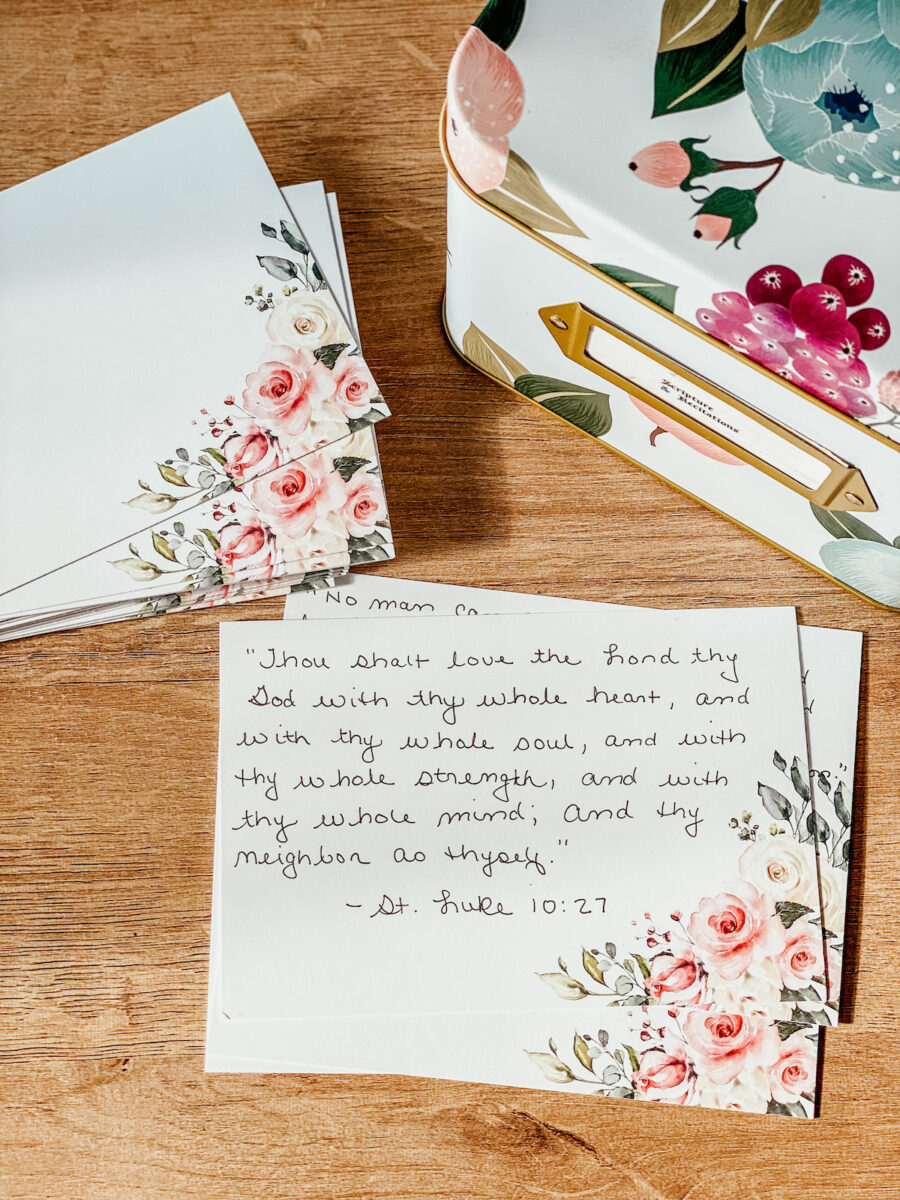 Scripture
& Recitations
"No man
"Thou shalt love the Lord thy
God with thy whole heart, and
with thy whole soul, and with
thy whole strength, and with
thy whole mind; and thy
neighbor as thyself."
- St. Luke 10:27